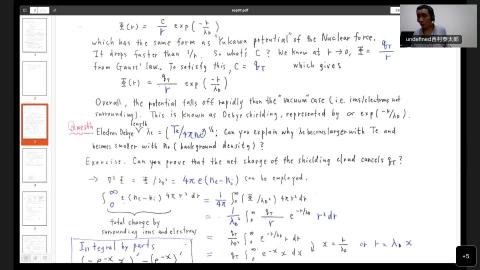 Φ(r) = C/r exp(-r/λD)
which has the same form as "Yukawa potential" of the Nuclear force.
It drops faster than 1/r. So what's C? We know at r→0, Φ = qT/r
from Gauss' law. To satisfy this, C = qT which gives
Φ(r) = qT/r exp(-r/λD)
Overall, the potential falls off rapidly than the "vacuum" case (i.e. ions/electrons not
surrounding). This is known as Debye shielding, represented by α exp(-r/λD).
Electron Debye length λe = (Te/4πn e²)^1/2; Can you explain why λe becomes larger with Te and
becomes smaller with n0 (background density)?
Exercise. Can you prove that the net charge of the shielding cloud cancels qT?
→ ∇²Φ = Φ/λD² = 4πe(ne-ni) can be employed.
∫0^∞ e(ne-ni) 4πr² dr = 1/4π ∫0^∞ (Φ/λD²) 4πr² dr
total charge by
surrounding ions and electrons
= 1/λD² ∫0^∞ qT/r e^-r/λD r² dr
= qT/λD² ∫0^∞ e^-r/λD r dr
x = r/λD or r = λD x
= qT ∫0^∞ e^-x x dx
Integral by parts
undefined西村泰太郎
+5